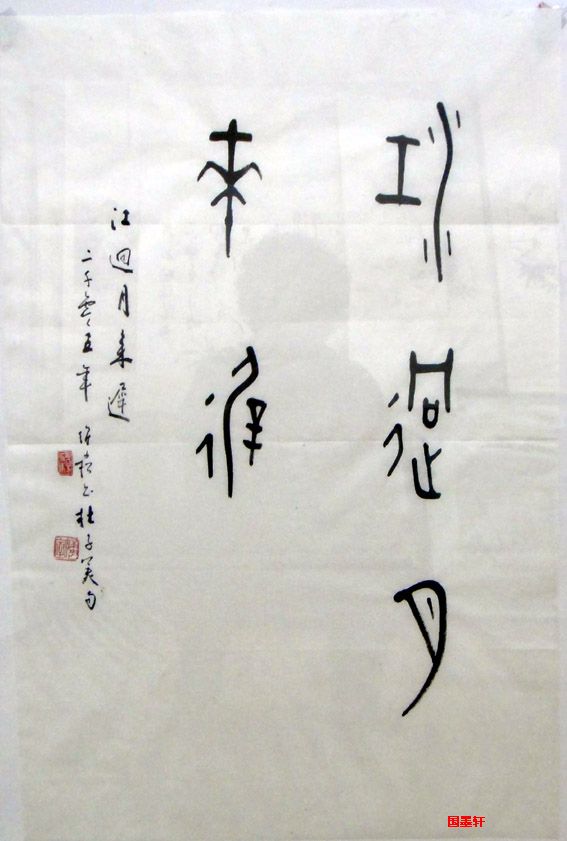 江迴月
来遲
江迴月来遲
二千零五年 书杜子美句
国墨轩